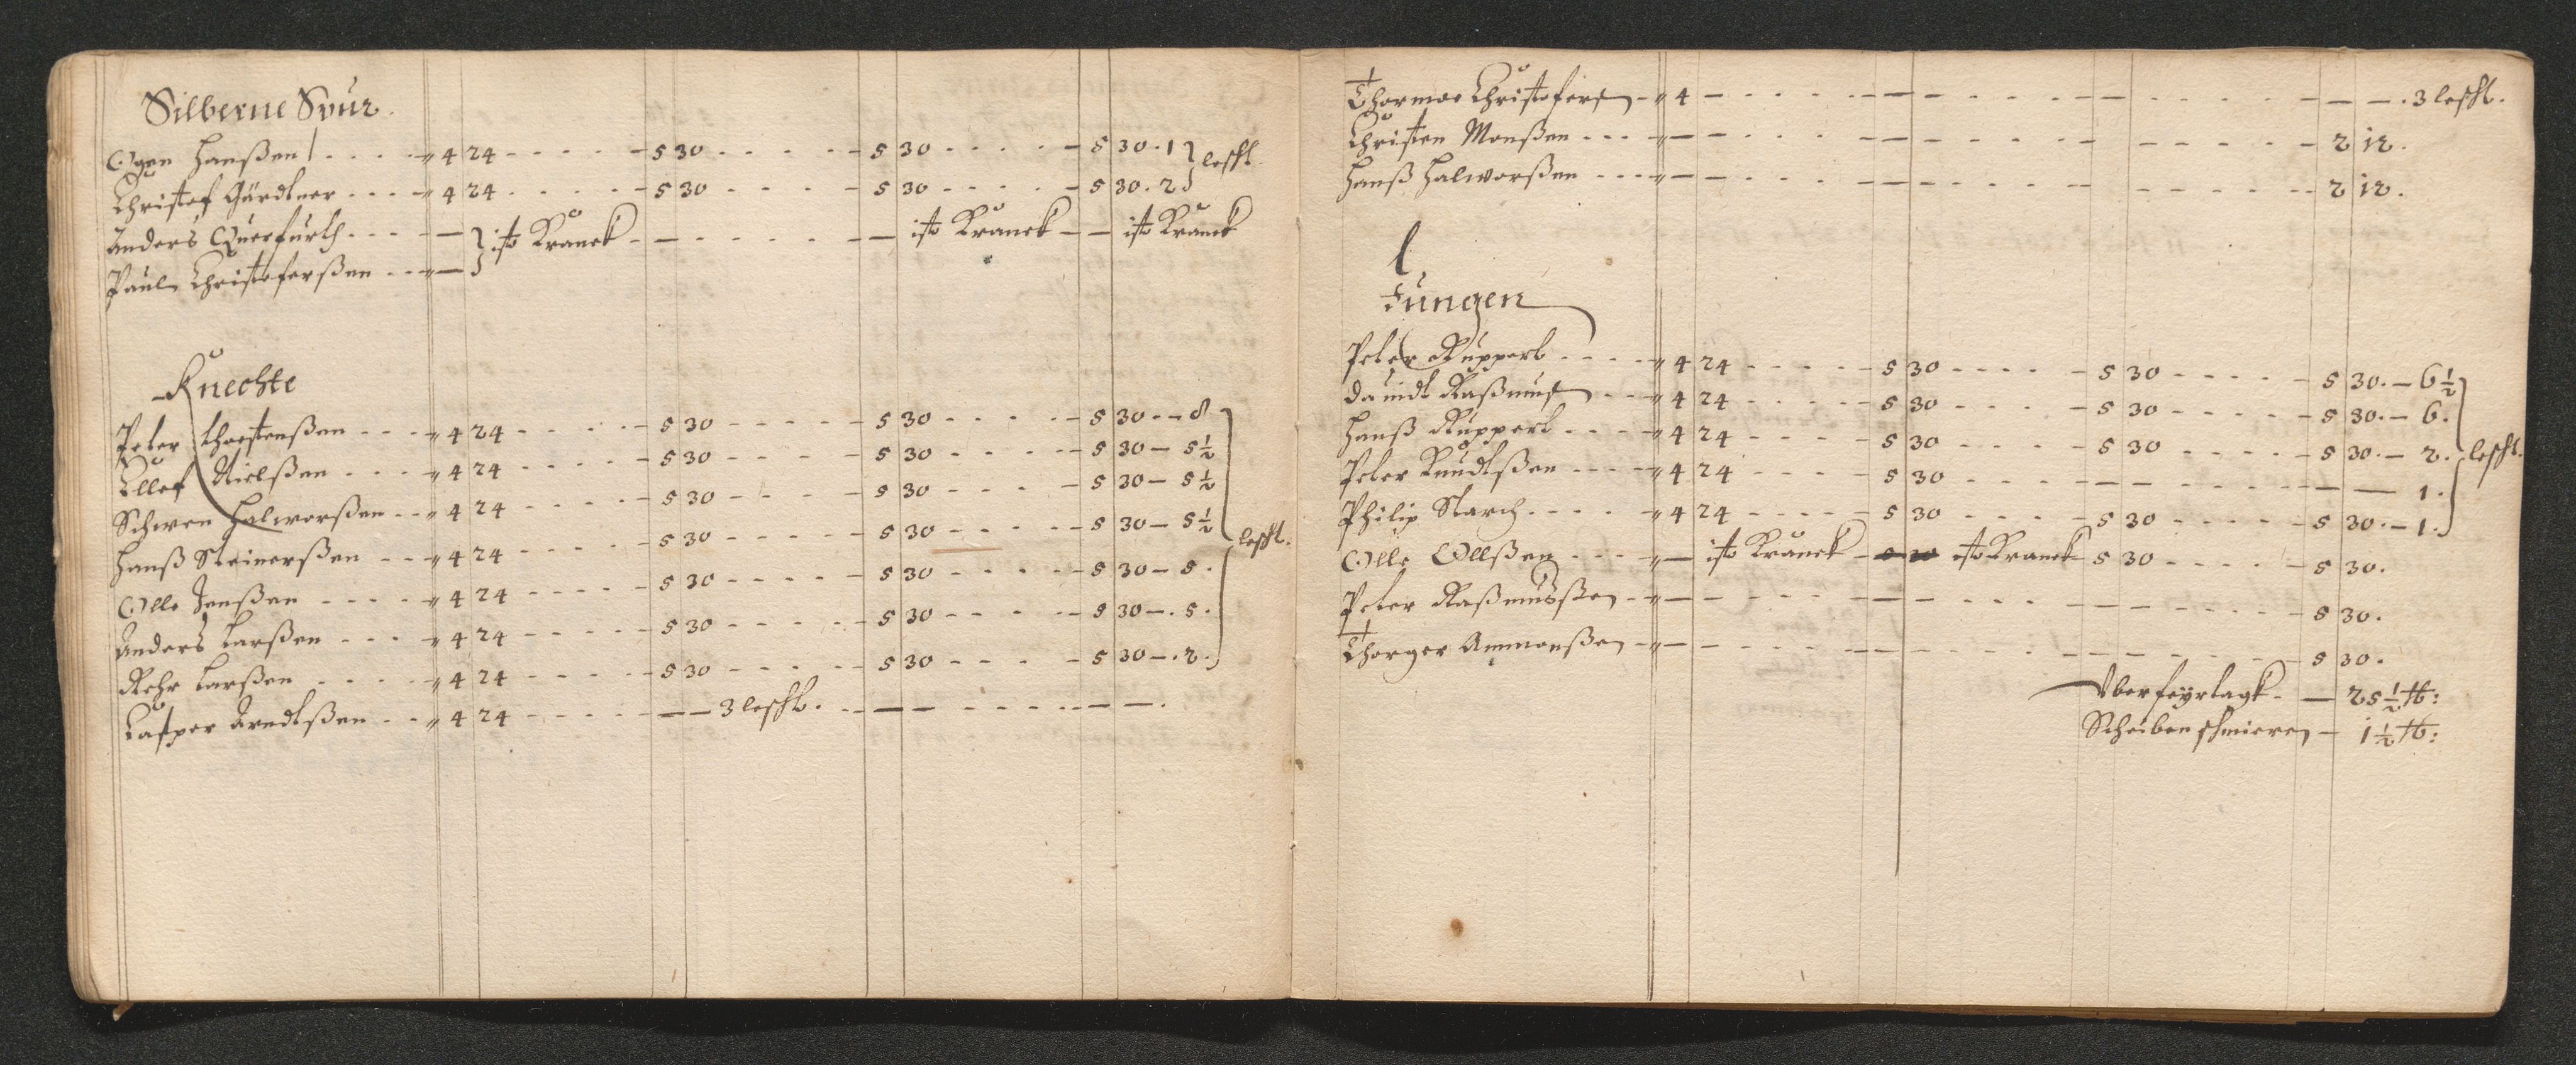 Silberne Spur.
Ogen Hanßen . . . . " 4 24 - - - - - 5 30 - - - - - 5 30 - - - - - 5 30 . 1 } leschl.
Christof Gärdtner . . . . " 4 24 - - - - - 5 30 - - - - - 5 30 - - - - - 5 30 . 2 }
Anders Querfurth . . . . — } ist Kranck - - - - - - - — ist Kranck - — ist Kranck
Paul Christoferßen . . " — }
Knechte
Peter Thorstenßen - - - " 4 24 - - - - - 5 30 - - - - - 5 30 - - - - - 5 30 . — 8
Ellef Nielßen - - - " 4 24 - - - - - 5 30 - - - - - 5 30 - - - - - 5 30 — 5½
Schwen Halworßen - - " 4 24 - - - - - 5 30 - - - - - 5 30 - - - - - 5 30 — 5½
Hanß Steinerßen - - " 4 24 - - - - - 5 30 - - - - - 5 30 - - - - - 5 30 — 5½ leschl.
Olle Jenßen - - - - " 4 24 - - - - - 5 30 - - - - - 5 30 - - - - - 5 30 — 5 .
Anders Larßen - - - " 4 24 - - - - - 5 30 - - - - - 5 30 - - - - - 5 30 — . 5 .
Rehr Larßen - - - - " 4 24 - - - - - 5 30 - - - - - 5 30 - - - - - 5 30 — . 2 .
Casper Arndtßen - - " 4 24 - - - - - — — 3 leschl. - - — — - - - - - — — .
Thormoe Christofersen - " 4 — - - - - - — - - - - - — - - - - - — — . 3 leschl.
Christen Monßen - - - " — - - - - - — - - - - - — - - - - - 2 12 .
Hanß Halworßen - - - - " — - - - - - — - - - - - — - - - - - 2 12 .
Jungen
Peter Ruppert - - - - " 4 24 - - - - - 5 30 - - - - - 5 30 - - - - - 5 30 . — 6½
Dauidt Raßmus - - - " 4 24 - - - - - 5 30 - - - - - 5 30 - - - - - 5 30 . — 6 .
Hanß Ruppert - - - - " 4 24 - - - - - 5 30 - - - - - 5 30 - - - - - 5 30 . — 2 . leschl.
Peter Knudtßen - - - - " 4 24 - - - - - 5 30 - - - - - — — - - - - - — — 1 .
Philip Starch - - - - " 4 24 - - - - - 5 30 - - - - - 5 30 - - - - - 5 30 . — 1 .
Olle Ollßen - - - " — ist Kranck — 5 30 ist Kranck 5 30 - - - - - 5 30 .
Peter Raßmußßen - - " — - - - - - — - - - - - — — - - - - - 5 30 .
Thorger Ammonßen - " — - - - - - — - - - - - — — - - - - - 5 30 .
Vberfeyrtagk . — 25½ ℔:
Scheiben schmieren — 1½ ℔: